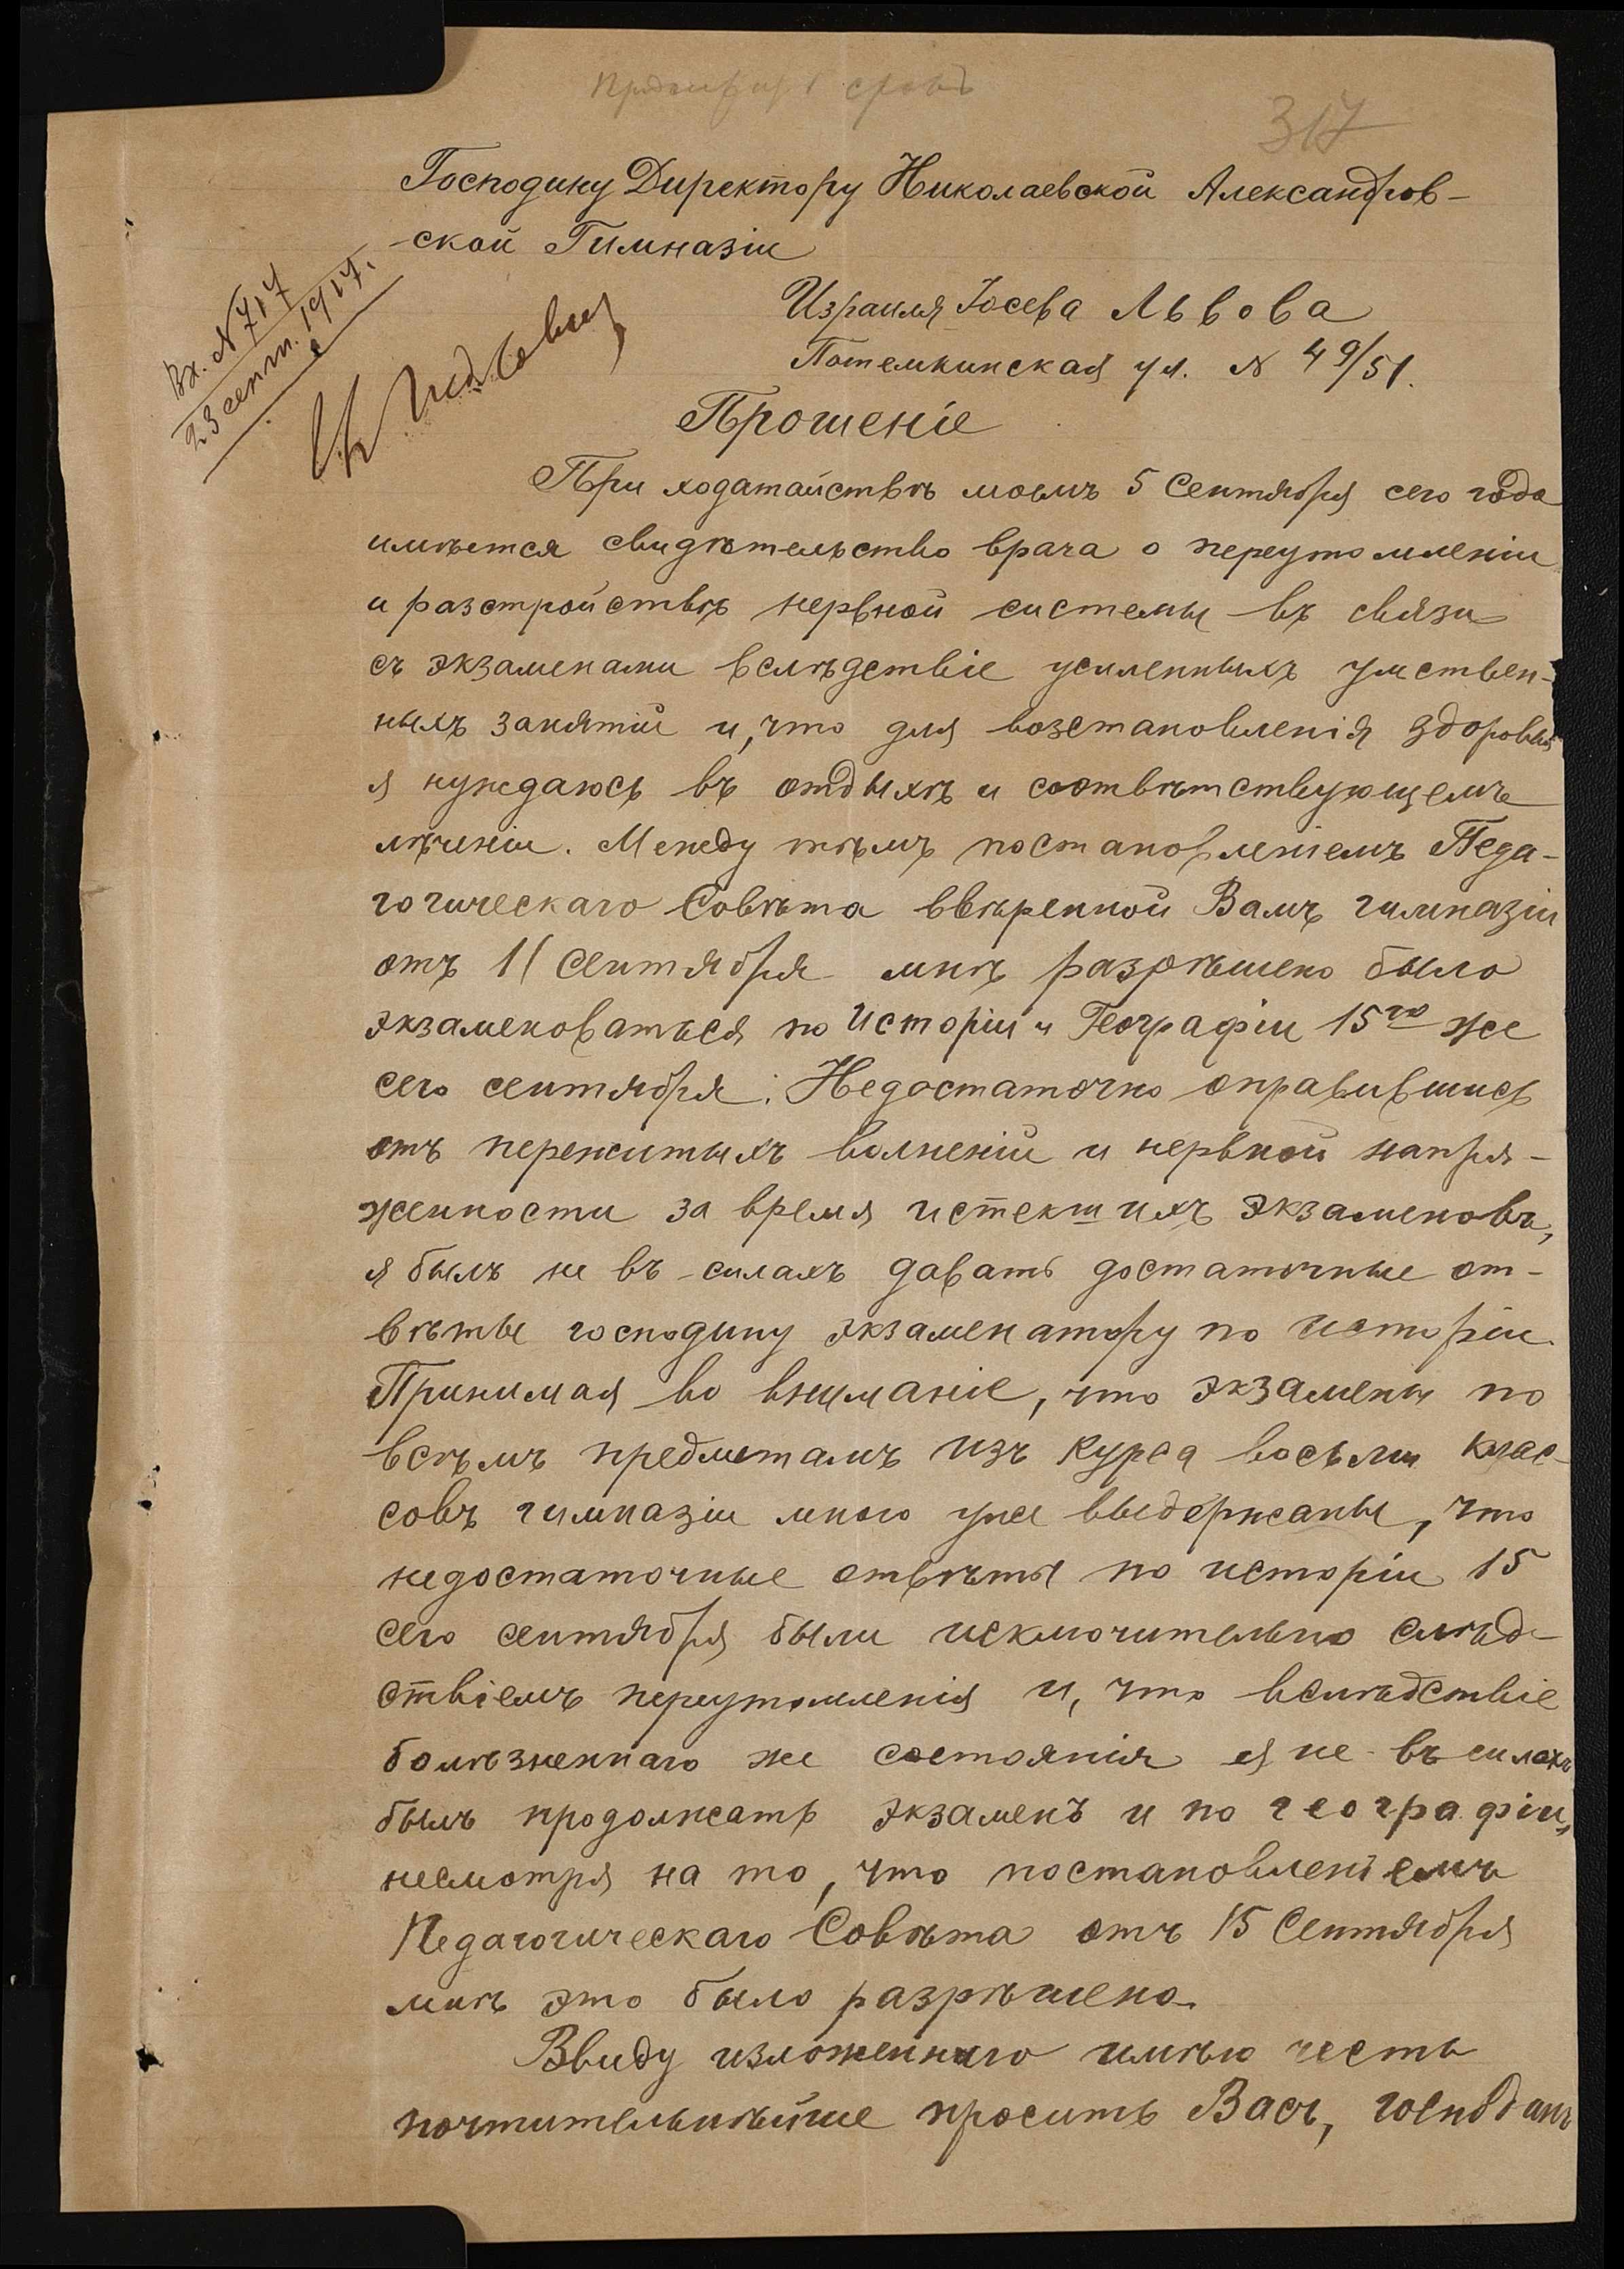 317
Господину Директору Николаевской Александров-
ской Гимназіи
Вх. № 717
23 сент. 1917.
Израиля Іосева Львова
Потемкинская ул. № 49/51.
Прошеніе
При ходатайствѣ моемъ 5 Сентября сего года
имѣется свидѣтельство врача о переутомленіи
и разстройствѣ нервной системы въ связи
съ экзаменами вслѣдствіе усиленныхъ умствен-
ныхъ занятій и, что для возстановленія здоровья
я нуждаюсь въ отдыхѣ и соотвѣтствующемъ
лѣченіи. Между тѣмъ постановленіемъ Педа-
гогическаго Совѣта ввѣренной Вамъ гимназіи
отъ 11 Сентября мнѣ разрѣшено было
экзаменоваться по Исторіи и Географіи 15го же
сего сентября. Недостаточно оправившись
отъ пережитыхъ волненій и нервной напря-
женности за время истекшихъ экзаменовъ,
я былъ не въ силахъ давать достаточные от-
вѣты господину экзаменатору по исторіи.
Принимая во вниманіе, что экзамены по
всѣмъ предметамъ изъ курса восьми клас-
совъ гимназіи мною уже выдержаны, что
недостаточные отвѣты по исторіи 15
сего сентября были исключительно слѣд-
ствіемъ переутомленія и, что вслѣдствіе
болѣзненнаго же состоянія я не въ силахъ
былъ продолжать экзаменъ и по географіи,
несмотря на то, что постановленіемъ
Педагогическаго Совѣта отъ 15 Сентября
мнѣ это было разрѣшено.
Ввиду изложеннаго имѣю честь
почтительнѣйше просить Васъ, господинъ